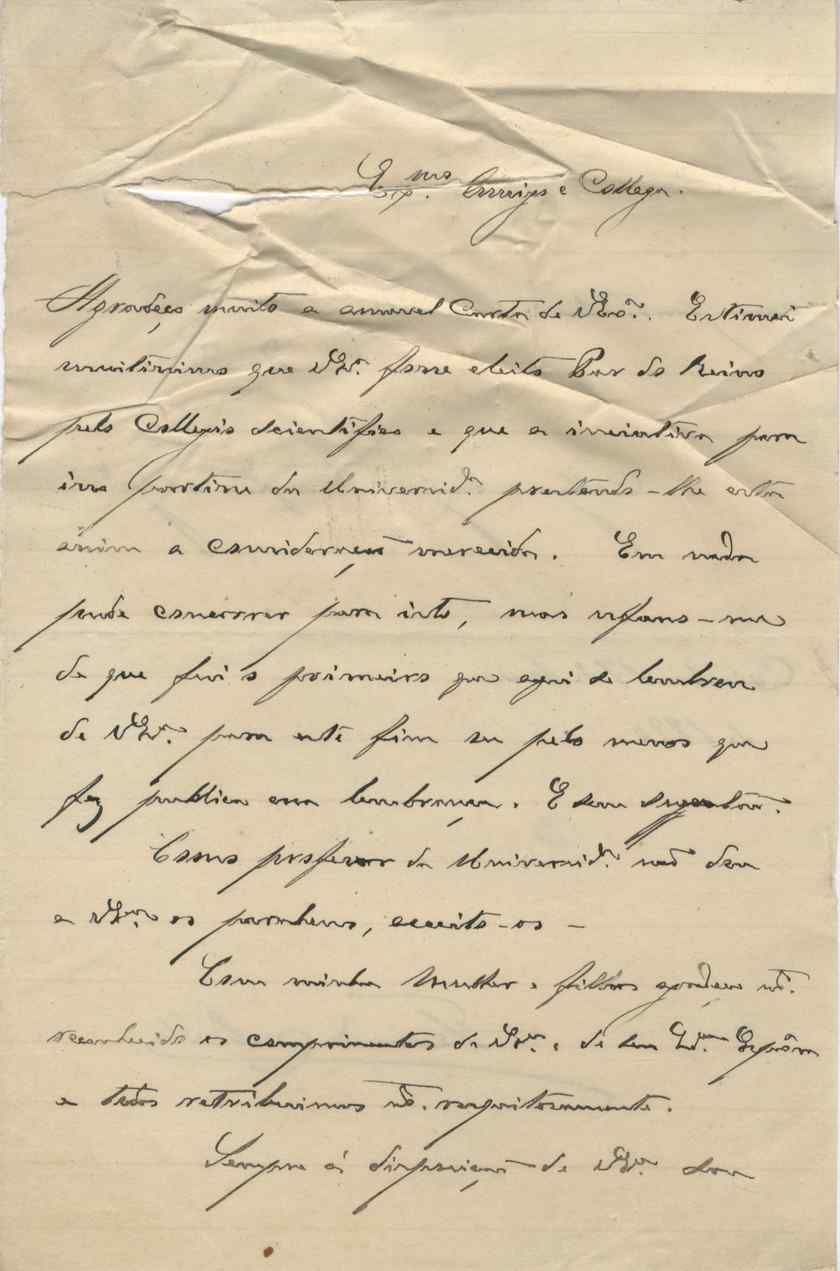 Exmo. Amigo e Collega.
Agradeço muito a amavel Carta de VExa. Estimei
muitissimo que VExa. fosse eleito Par do Reino
pelo Collegio scientifico e que a iniciativa para
isso partisse da Universide. prestando-lhe esta
assim a consideração merecida. Em nada
pude concorrer para isto, mas ufano-me
de que fui o primeiro que aqui se lembrou
de VExa. para este fim ou pelo menos que
fez publica essa lembrança. E sem
Como professor da Universide. não dou
a VExa. os parabens, acceito-os -
Com minha mulher e filhos agradeço mto.
reconhecido os comprimentos de VExa. e de sua Exma. Esposa
e todos retribuimos mto. respeitosamente.
Sempre á disposição de VExa. sou